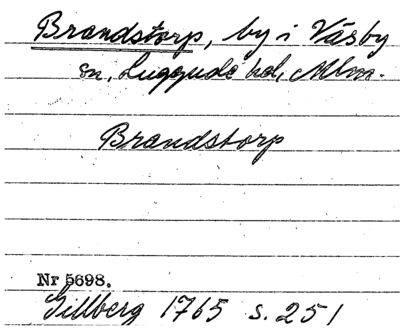 Brandstorp, by i Väsby
sn, Luggude hd, Mlm.
Brandstorp
Nr 5698.
Gillberg 1765 s. 251